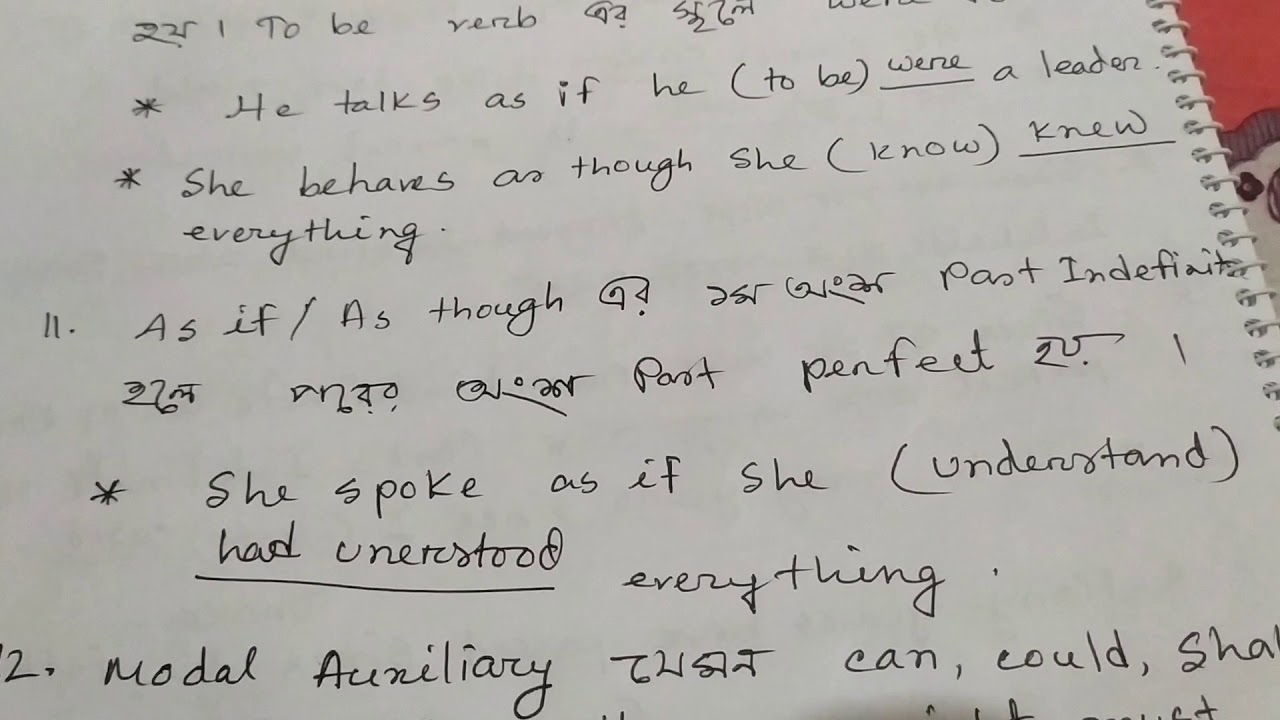 হয়। To be verb এর স্থলে were
* He talks as if he (to be) were a leader.
* She behaves as though she (know) knew
everything.
11. As if / As though এর ১ম অংশে Past Indefinite
হলে পরের অংশে Past perfect হয়।
* She spoke as if she (understand)
had unerstood everything.
12. Modal Auxiliary যেমন can, could, Shal